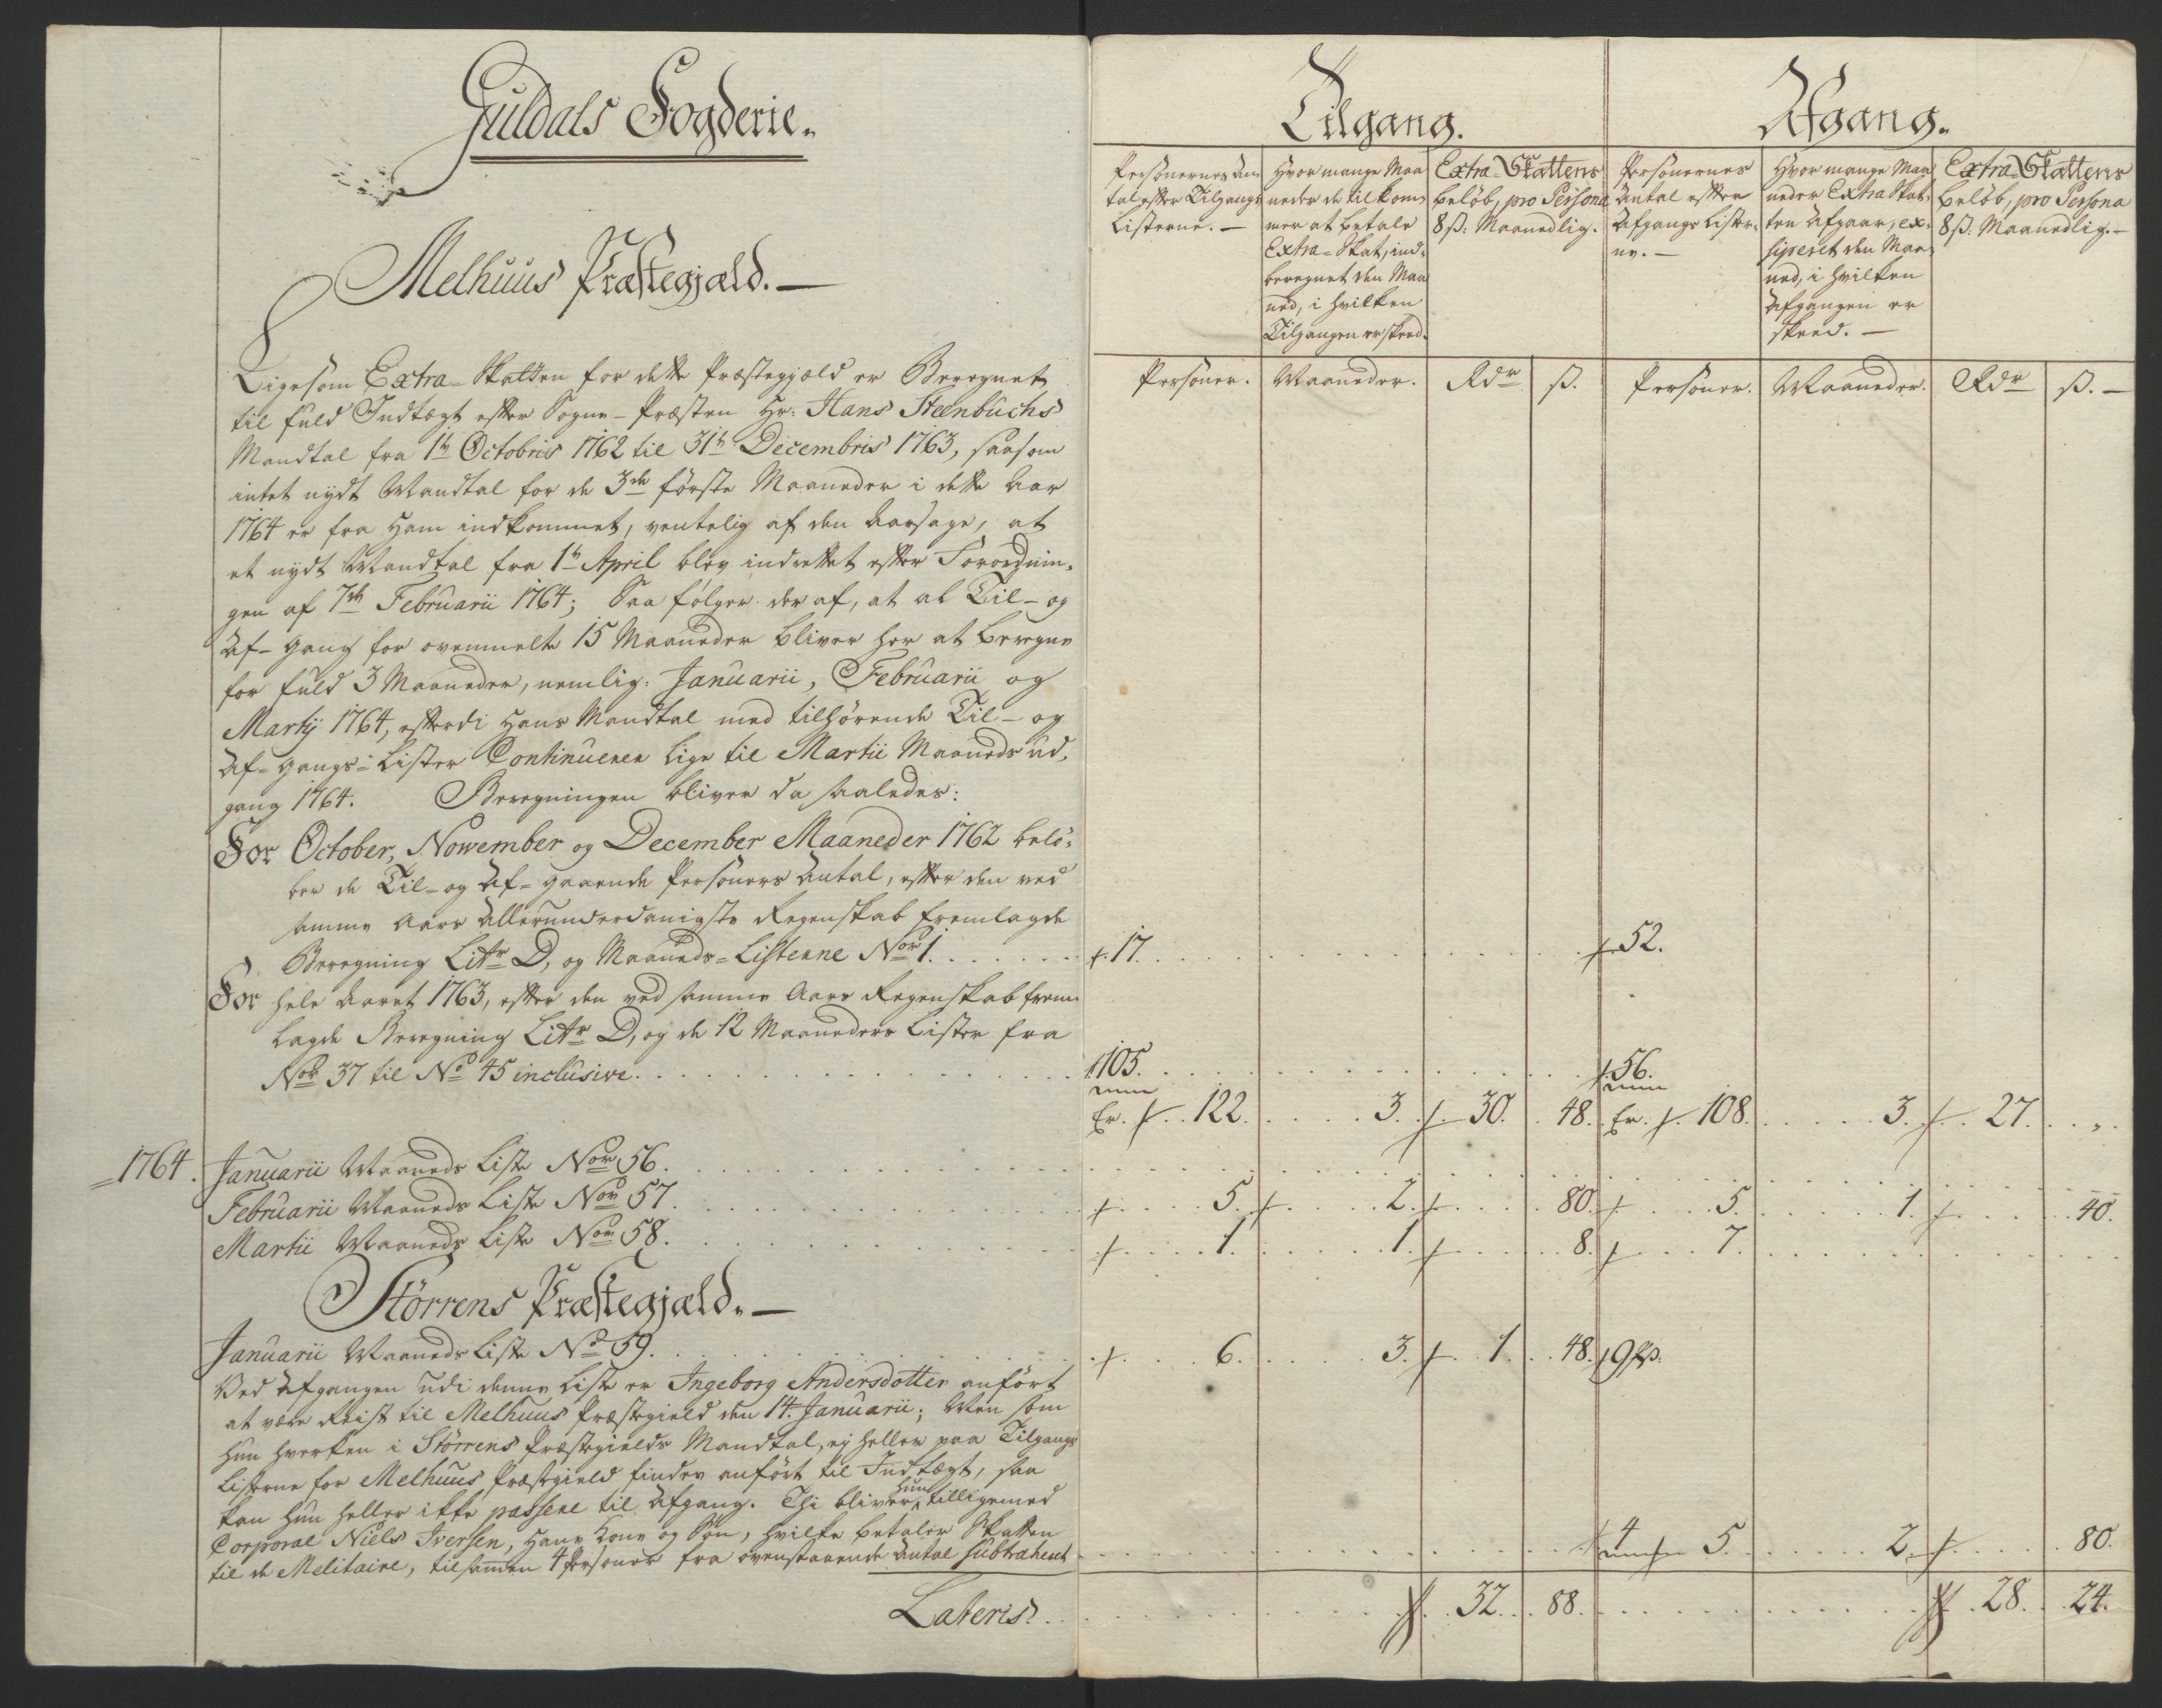 Guldals Fogderie.
Melhuus Præstegjæld.—
Ligesom Extra-Skatten for dette Præstegjæld er Beregnet
til fuld Indtægt efter Sogne-Præsten Hr: Hans Steenbuchs
Mandtal fra 1te Octobris 1762 til 31te Decembris 1763, saasom
intet nydt Mandtal for de 3de første Maaneder i dette Aar
1764 er fra Ham indkommet, ventelig af den Aarsage, at
et nydt Mandtal fra 1te April blev indrettet efter Forordnin-
gen af 7de Februarii 1764; Saa følger deraf, at al Til- og
Af-gang for ovenmelte 15 Maaneder bliver her at beregne
for fuld 3 Maaneder, nemlig: Januarii, Februarii og
Martij 1764, efterdi Hans Mandtal med tilhørende Til- og
Af-gangs-Lister Continuerer lige til Martii Maaneds ud-
gang 1764. Beregningen bliver da saaledes:
For October, November og December Maaneder 1762 belø-
ber de Til- og Af-gaaende Personers Antal, efter den ved
samme Aars Allerunderdanigste Regenskab fremlagde
Beregning Litr D, og Maaneds-Listerne Nor 1.
For hele Aaret 1763, efter den ved samme Aars Regenskab frem-
lagde Beregning Litr D, og de 12 Maaneders Lister fra
Nor 37 til No 45 inclusive.
1764. Januarii Maaneds Liste Nor 56.
Februarii Maaneds Liste Nor 57.
Martii Maaneds Liste Nor 58.
Störrens Præstegjæld.—
Januarii Maaneds Liste No 59.
Ved Afgangen udi denne Liste er Ingeborg Andersdotter anført
at være Reist til Melhuus Præstegield den 14. Januarii; Men som
Hun hverken i Störrens Præstegields Mandtal, ej heller paa Tilgangs
Listerne for Melhuus Præstegield findes anført til Indtægt, saa
kan Hun heller ikke passere til Afgang. Thi bliver hun tilligemed
Corporal Niels Iversen, Hans Kone og Søn, hvilke betaler Skatten
til de Melitaire, tilsamen 4 Personer fra ovenstaaende Antal subtraheret
Lateris.
Tilgang.
Afgang.
Personernes An-
tal efter Tilgangs
Listerne.—
Hvor mange Maa
neder de tilkom-
mer at betale
Extra-Skat, ind-
beregnet den Maa
ned, i hvilken
Tilgangen er skeed.
Extra-Skattens
beløb, pro Persona
8 ß: Maanedlig.
Personernes
Antal efter
Afgangs Lister-
ne.—
Hvor mange Maa
neder Extra Skat-
ten Afgaar, ex-
siperet den Maa-
ned, i hvilken
Afgangen er
skeed.—
Extra-Skattens
beløb, pro Persona
8 ß. Maanedlig.—
Personer. Maaneder. Rdr ß. Personer. Maaneder. Rdr ß.—
17. 52.
105. 56.
Er. 122. 3. 30. 48. Er. 108. 3. 27. „
5. 2. 80. 5. 1. 40.
1. 1. 8. 7.
6. 3. 1. 48. 9
4
5. 2. 80.
32. 88. 28. 24.